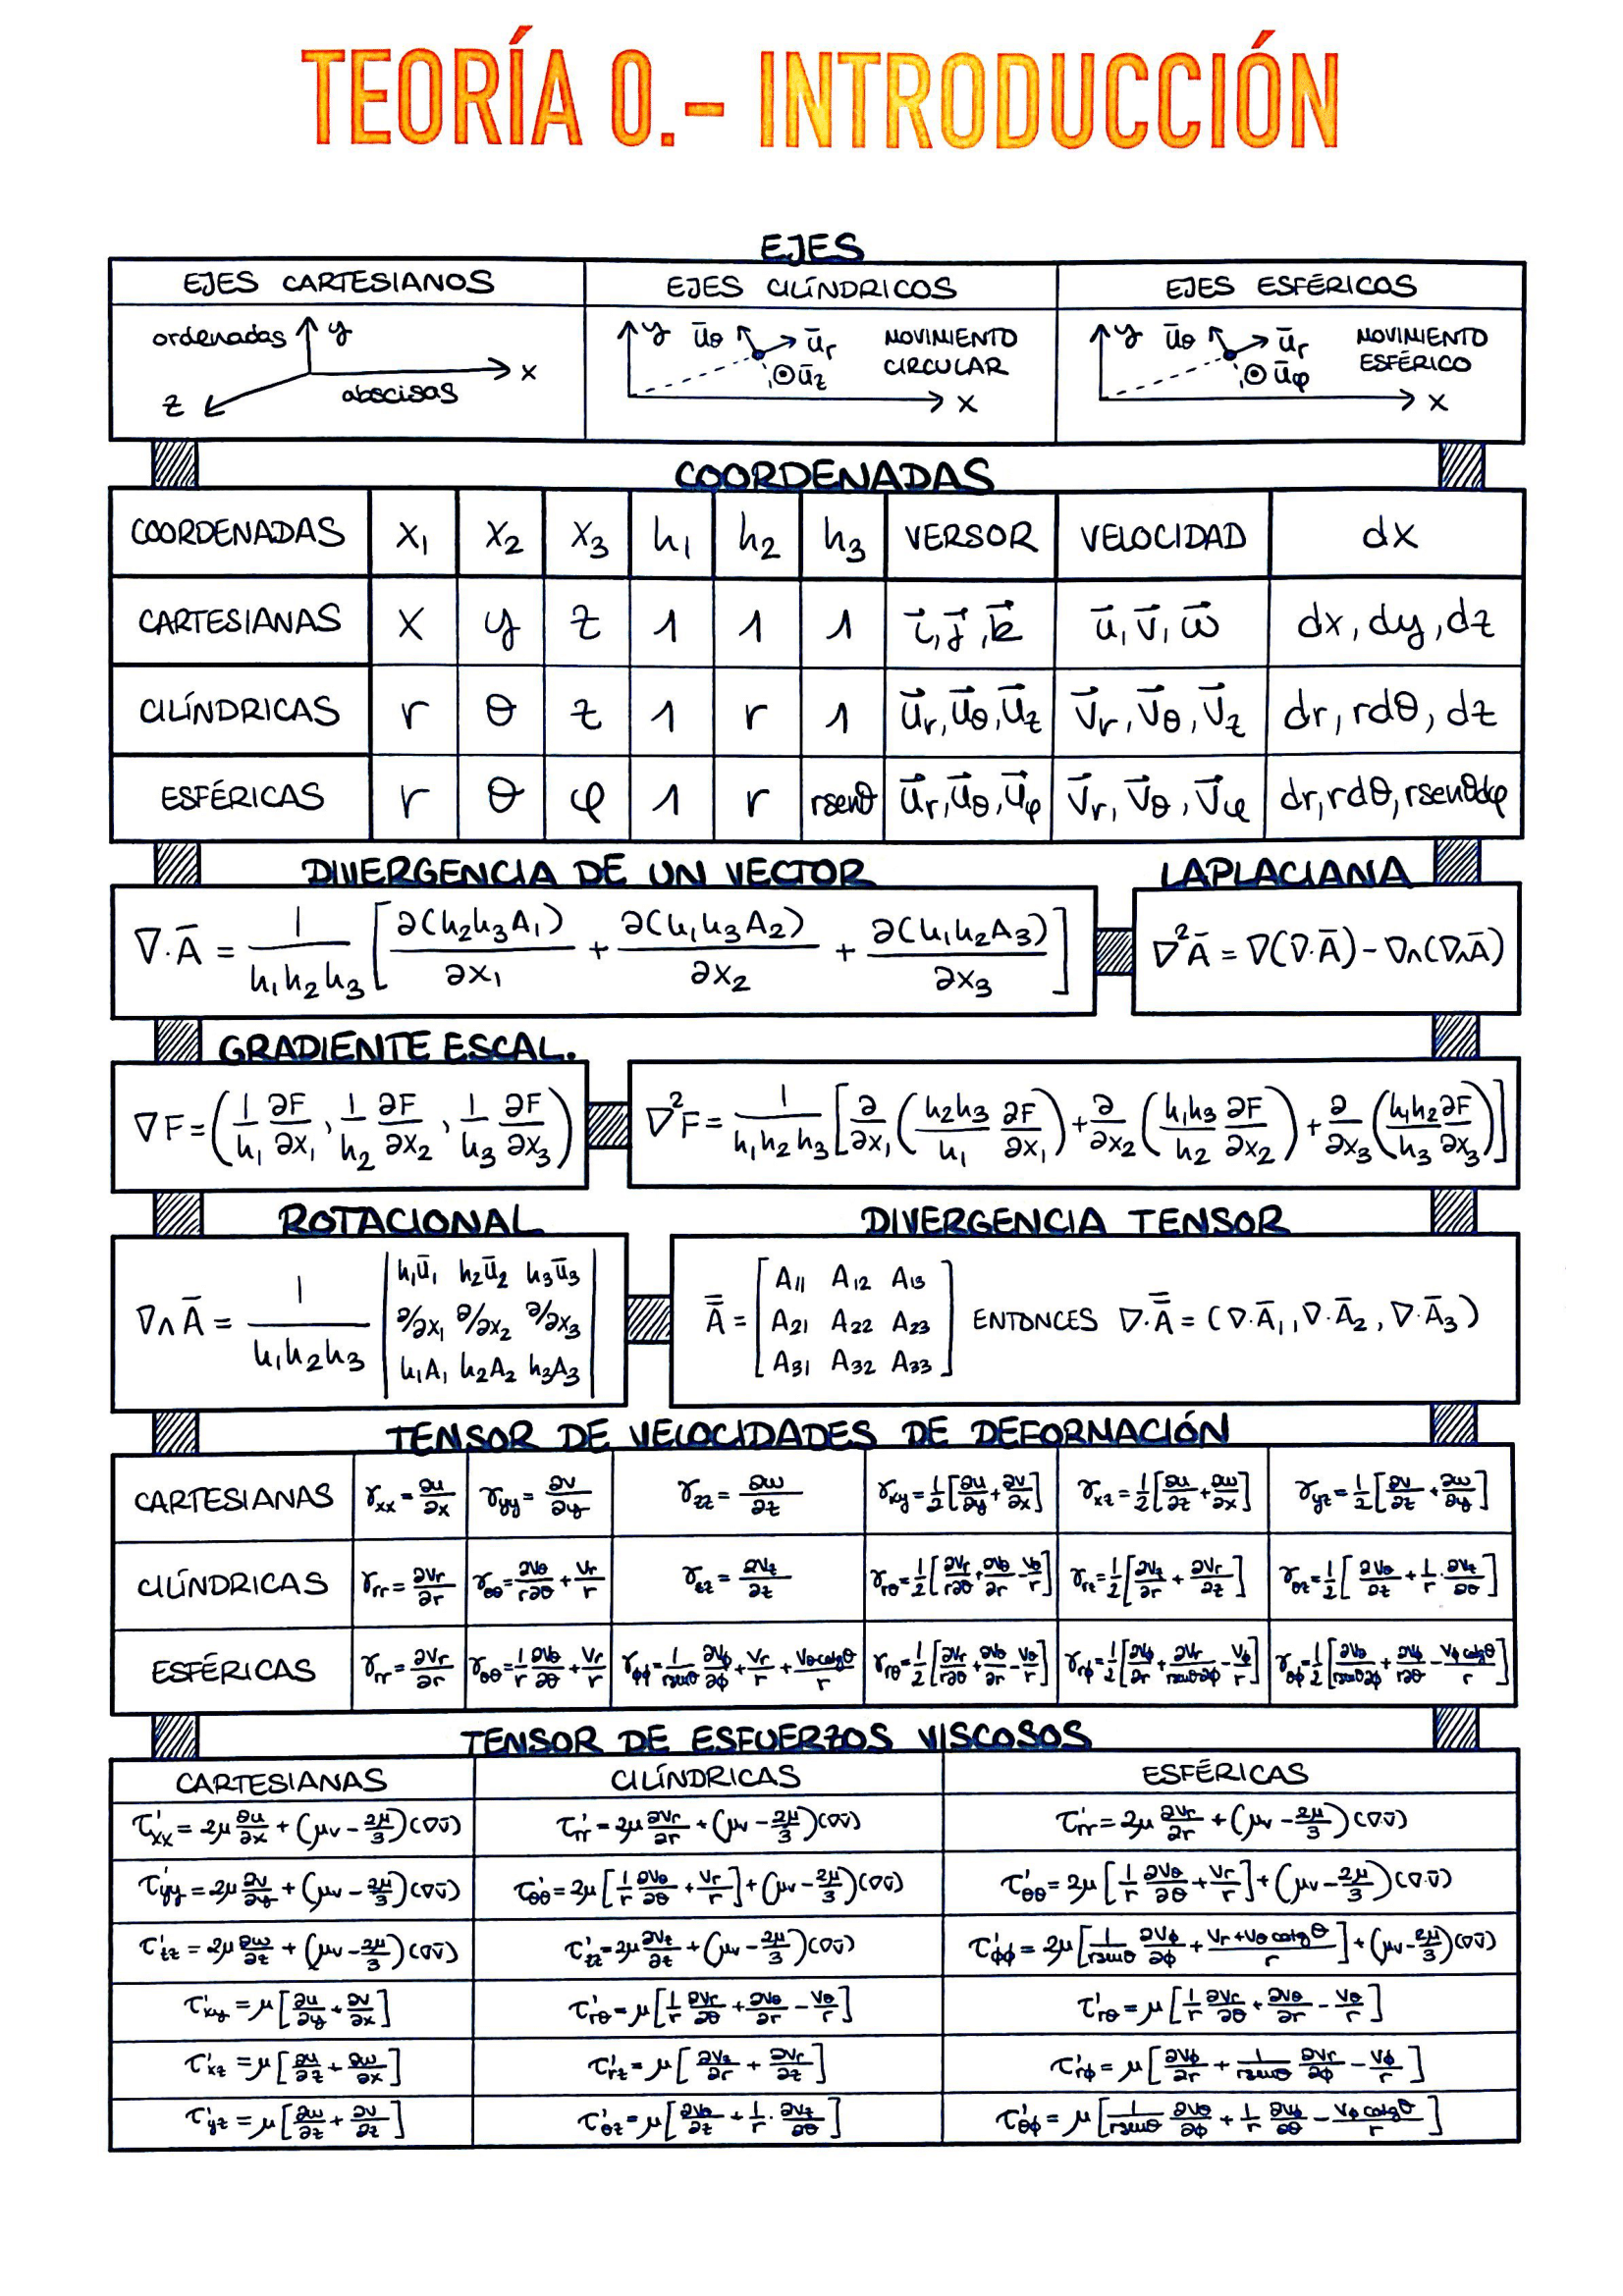 TEORÍA 0.- INTRODUCCIÓN
EJES
EJES CARTESIANOS EJES CILÍNDRICOS EJES ESFÉRICOS
ordenadas y x abscisas z
y ūθ ūr ūz x MOVIMIENTO CIRCULAR
y ūθ ūr ūφ x MOVIMIENTO ESFÉRICO
COORDENADAS
COORDENADAS x₁ x₂ x₃ h₁ h₂ h₃ VERSOR VELOCIDAD dx
CARTESIANAS x y z 1 1 1 i⃗, j⃗, k⃗ u⃗, v⃗, w⃗ dx, dy, dz
CILÍNDRICAS r θ z 1 r 1 u⃗r, u⃗θ, u⃗z v⃗r, v⃗θ, v⃗z dr, rdθ, dz
ESFÉRICAS r θ φ 1 r rsenθ u⃗r, u⃗θ, u⃗φ v⃗r, v⃗θ, v⃗φ dr, rdθ, rsenθdφ
DIVERGENCIA DE UN VECTOR LAPLACIANA
∇·Ā = 1/(h₁h₂h₃) [∂(h₂h₃A₁)/∂x₁ + ∂(h₁h₃A₂)/∂x₂ + ∂(h₁h₂A₃)/∂x₃]
∇²Ā = ∇(∇·Ā) - ∇∧(∇∧Ā)
GRADIENTE ESCAL.
∇F = (1/h₁ ∂F/∂x₁, 1/h₂ ∂F/∂x₂, 1/h₃ ∂F/∂x₃)
∇²F = 1/(h₁h₂h₃) [∂/∂x₁ (h₂h₃/h₁ ∂F/∂x₁) + ∂/∂x₂ (h₁h₃/h₂ ∂F/∂x₂) + ∂/∂x₃ (h₁h₂/h₃ ∂F/∂x₃)]
ROTACIONAL DIVERGENCIA TENSOR
∇∧Ā = 1/(h₁h₂h₃) | h₁ū₁ h₂ū₂ h₃ū₃
∂/∂x₁ ∂/∂x₂ ∂/∂x₃
h₁A₁ h₂A₂ h₃A₃ |
Ā̄ = [ A₁₁ A₁₂ A₁₃
A₂₁ A₂₂ A₂₃
A₃₁ A₃₂ A₃₃ ]
ENTONCES ∇·Ā̄ = (∇·Ā₁, ∇·Ā₂, ∇·Ā₃)
TENSOR DE VELOCIDADES DE DEFORMACIÓN
CARTESIANAS γxx = ∂u/∂x γyy = ∂v/∂y γzz = ∂w/∂z γxy = 1/2 [∂u/∂y + ∂v/∂x] γxz = 1/2 [∂u/∂z + ∂w/∂x] γyz = 1/2 [∂v/∂z + ∂w/∂y]
CILÍNDRICAS γrr = ∂vr/∂r γθθ = ∂vθ/r∂θ + vr/r γzz = ∂vz/∂z γrθ = 1/2 [∂vr/r∂θ + ∂vθ/∂r - vθ/r] γrz = 1/2 [∂vz/∂r + ∂vr/∂z] γθz = 1/2 [∂vθ/∂z + 1/r · ∂vz/∂θ]
ESFÉRICAS γrr = ∂vr/∂r γθθ = 1/r ∂vθ/∂θ + vr/r γϕϕ = 1/rsenθ ∂vϕ/∂ϕ + vr/r + vθcotgθ/r γrθ = 1/2 [∂vr/r∂θ + ∂vθ/∂r - vθ/r] γrϕ = 1/2 [∂vϕ/∂r + ∂vr/rsenθ∂ϕ - vϕ/r] γθϕ = 1/2 [∂vθ/rsenθ∂ϕ + ∂vϕ/r∂θ - vϕcotgθ/r]
TENSOR DE ESFUERZOS VISCOSOS
CARTESIANAS CILÍNDRICAS ESFÉRICAS
τ'xx = 2μ ∂u/∂x + (μv - 2μ/3)(∇v̄) τ'rr = 2μ ∂vr/∂r + (μv - 2μ/3)(∇v̄) τ'rr = 2μ ∂vr/∂r + (μv - 2μ/3)(∇·v̄)
τ'yy = 2μ ∂v/∂y + (μv - 2μ/3)(∇v̄) τ'θθ = 2μ [1/r ∂vθ/∂θ + vr/r] + (μv - 2μ/3)(∇v̄) τ'θθ = 2μ [1/r ∂vθ/∂θ + vr/r] + (μv - 2μ/3)(∇·v̄)
τ'zz = 2μ ∂w/∂z + (μv - 2μ/3)(∇v̄) τ'zz = 2μ ∂vz/∂z + (μv - 2μ/3)(∇v̄) τ'ϕϕ = 2μ [1/rsenθ ∂vϕ/∂ϕ + (vr + vθ cotgθ)/r] + (μv - 2μ/3)(∇v̄)
τ'xy = μ [∂u/∂y + ∂v/∂x] τ'rθ = μ [1/r ∂vr/∂θ + ∂vθ/∂r - vθ/r] τ'rθ = μ [1/r ∂vr/∂θ + ∂vθ/∂r - vθ/r]
τ'xz = μ [∂u/∂z + ∂w/∂x] τ'rz = μ [∂vz/∂r + ∂vr/∂z] τ'rϕ = μ [∂vϕ/∂r + 1/rsenθ ∂vr/∂ϕ - vϕ/r]
τ'yz = μ [∂w/∂z + ∂v/∂z] τ'θz = μ [∂vθ/∂z + 1/r · ∂vz/∂θ] τ'θϕ = μ [1/rsenθ ∂vθ/∂ϕ + 1/r ∂vϕ/∂θ - vϕ cotgθ/r]